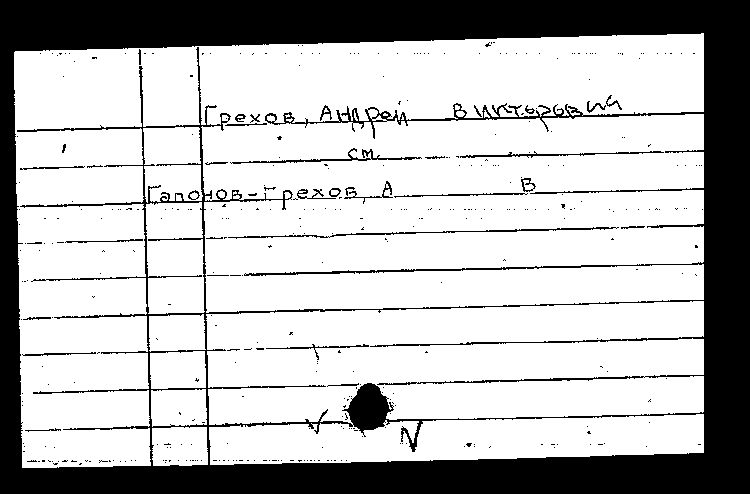 Грехов, Андрей Викторович
см.
Гапонов-Грехов, А В
V N